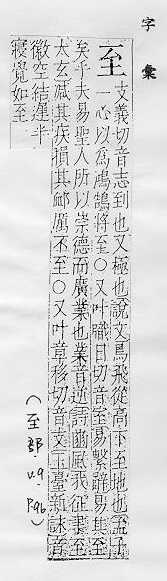 字彙
至 支義切音志到也又極也說文鳥飛從高下至地也孟子
一心以爲鴻鵠將至○又叶職日切音室易繫辭易其至
矣乎夫易聖人所以崇德而廣業也業音逆詩豳風我征聿至
太玄減其疾損其卹厲丕至○又叶章移切音支玉臺新詠音
徽空結遲半
寢覺如至
(至部.v.9.P.96)